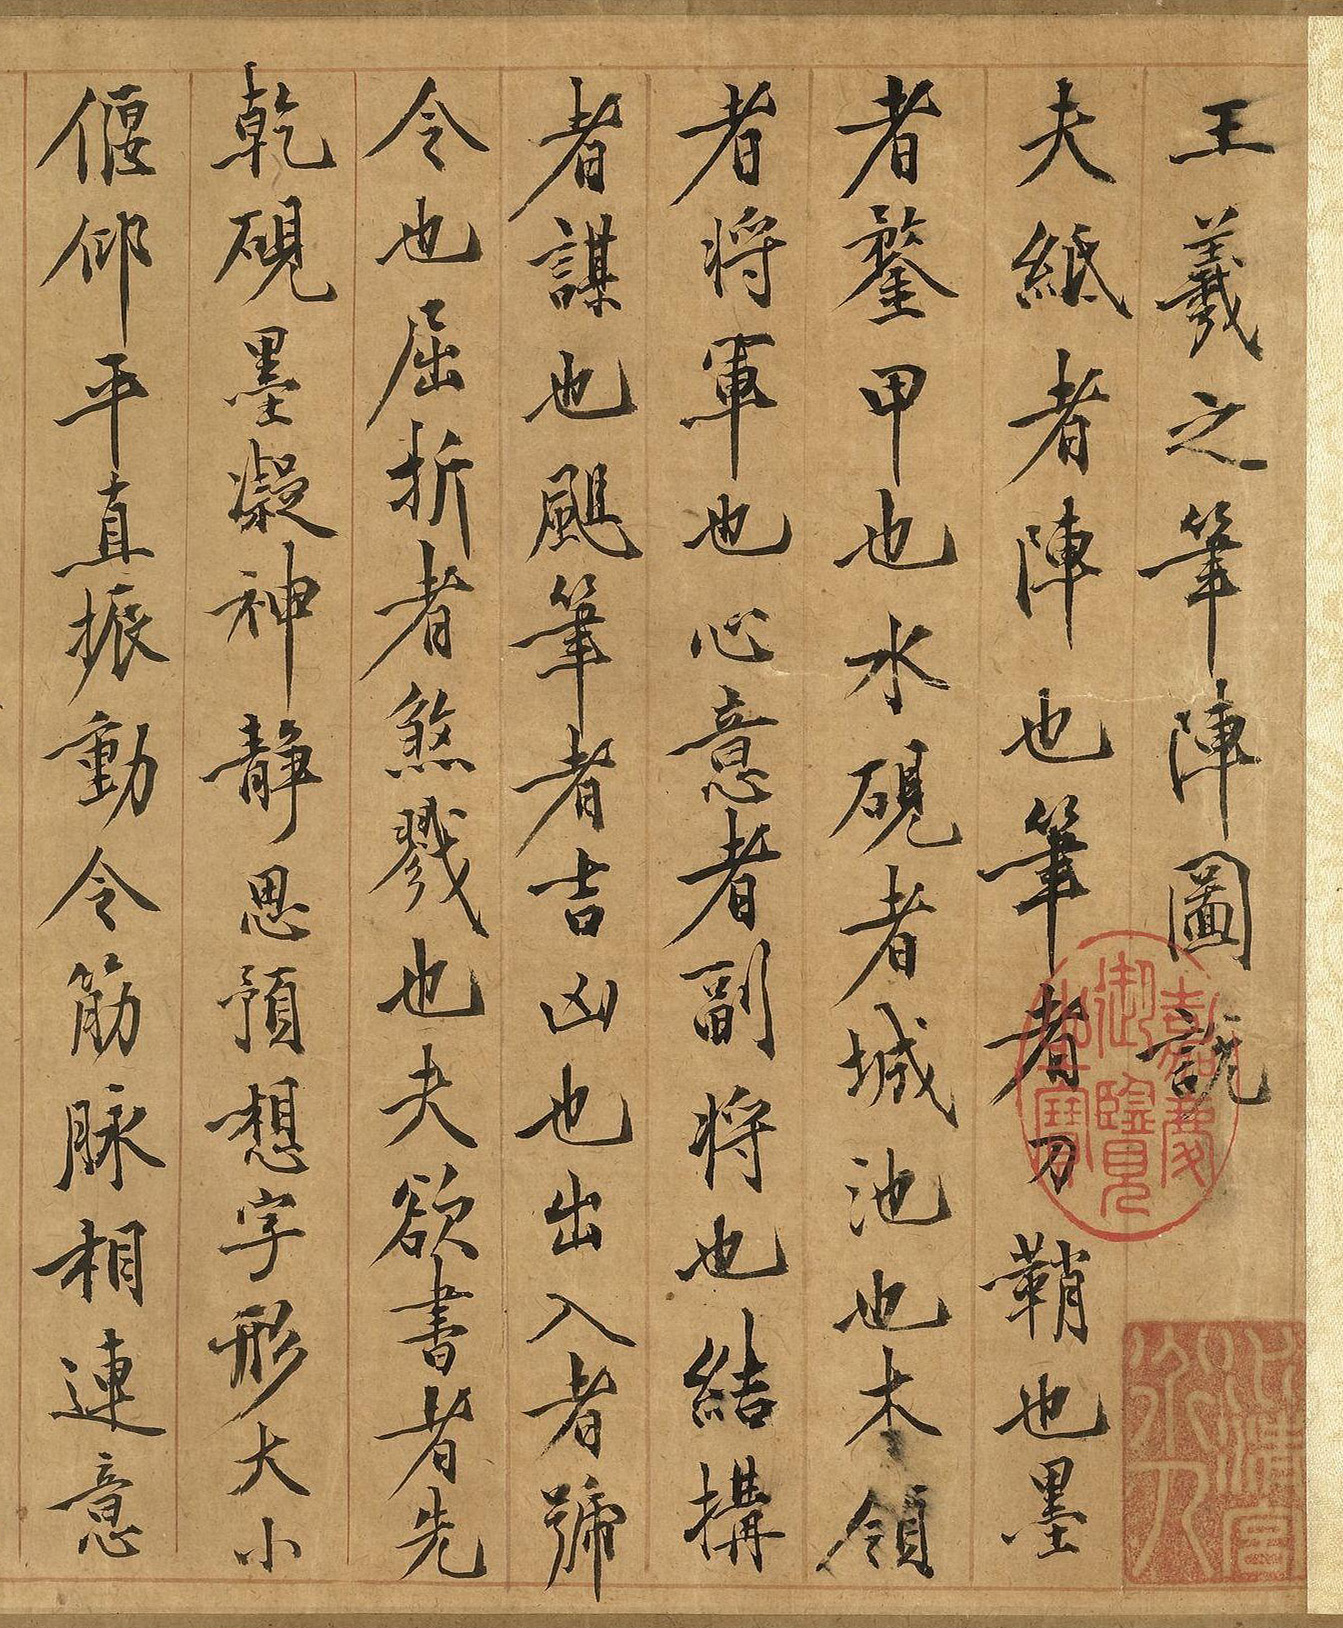 王羲之筆陣圖説
夫紙者陣也筆者刀鞘也墨
者鍪甲也水硯者城池也本領
者将軍也心意者副将也結搆
者謀也颶筆者吉凶也出入者號
令也屈折者煞戮也夫欲書者先
乾硯墨凝神静思預想字形大小
偃仰平直振動令筋脉相連意
嘉慶御覽之寶